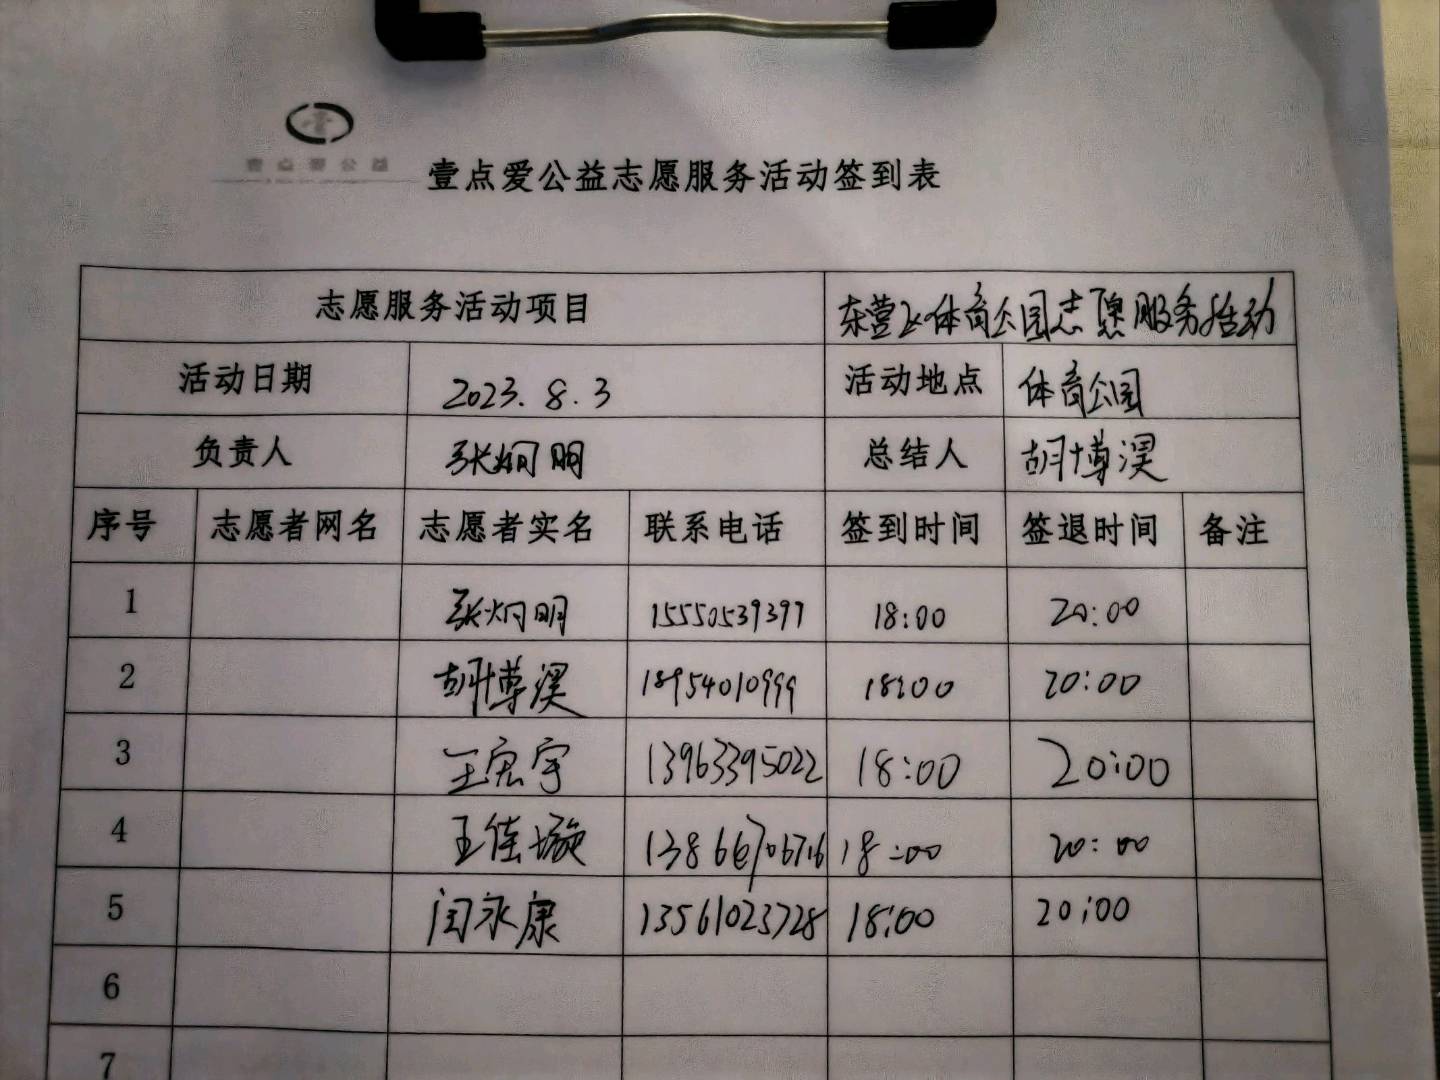 壹点爱公益
壹点爱公益志愿服务活动签到表
志愿服务活动项目 东营区体育公园志愿服务活动
活动日期 2023.8.3 活动地点 体育公园
负责人 张炯明 总结人 胡博淏
序号 志愿者网名 志愿者实名 联系电话 签到时间 签退时间 备注
1 张炯明 15550539397 18:00 20:00
2 胡博淏 18954010999 18:00 20:00
3 王宏宇 13963395022 18:00 20:00
4 王佳璇 13866706716 18:00 20:00
5 闫永康 13561023728 18:00 20:00
6
7